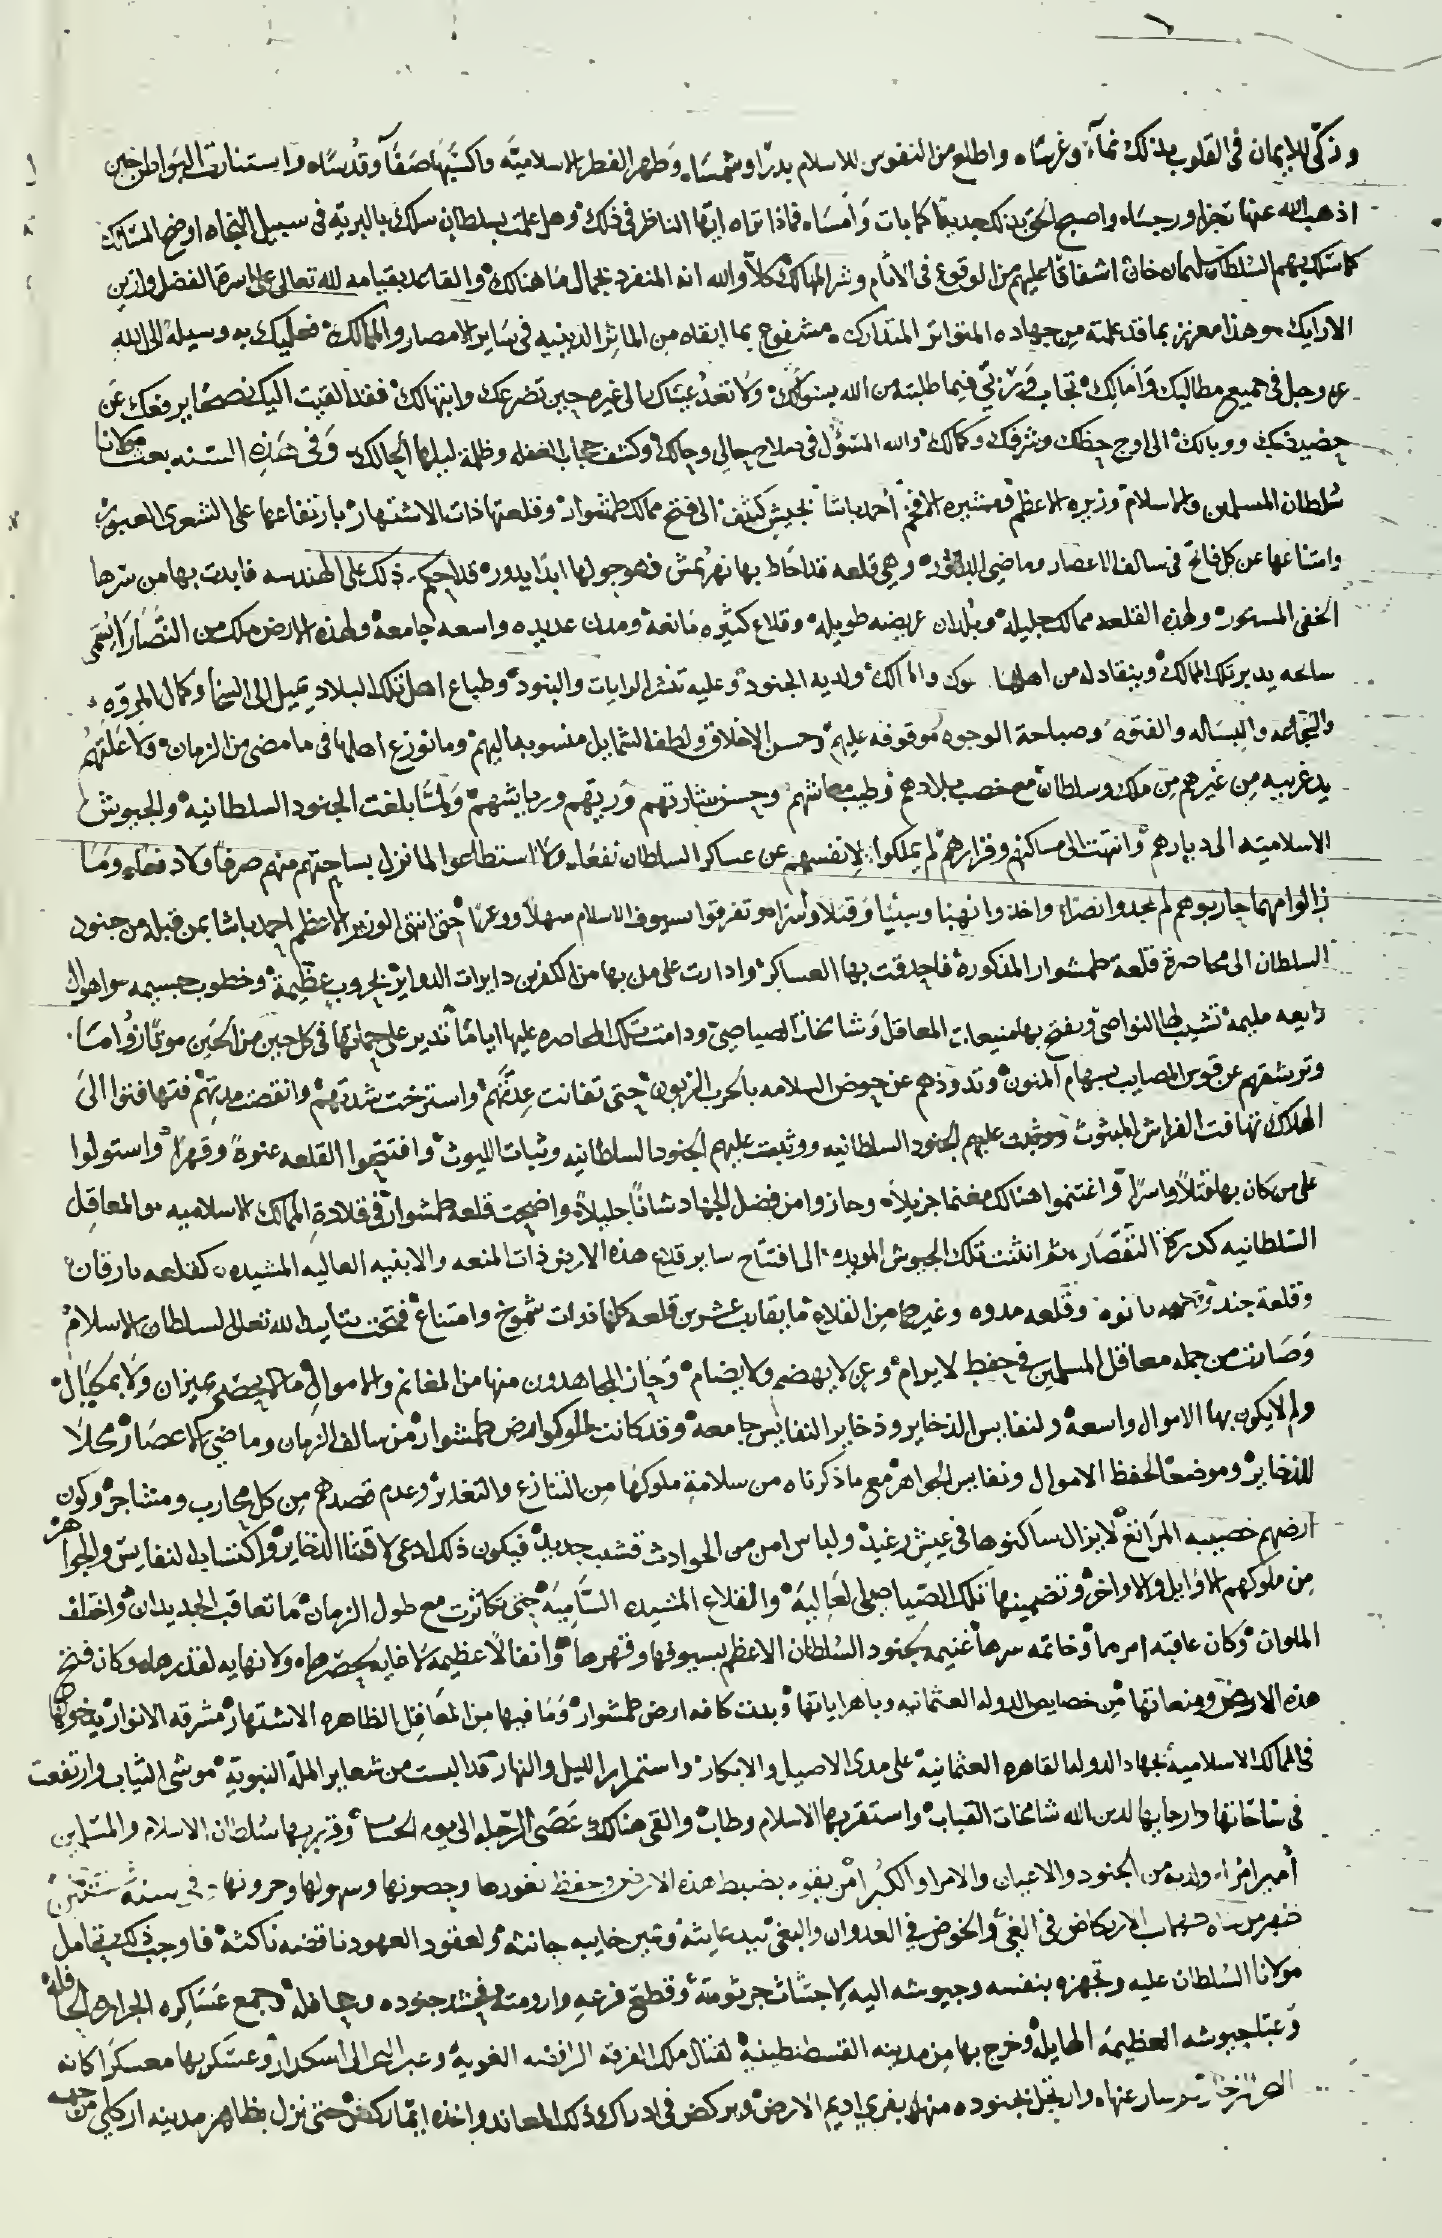 وزكى للايمان في القلوب بذلك نمآء وغرسًا، واطلع من النفوس للاسلام بدرًا وشمسًا، وطهر الفطر الاسلاميّه واكسبها صفآ وقدسًا، واستنارت البواطن حين
اذهب الله عنها نجزا ورجسًا، واصبح الحق بذلك جديدًا كما بات وامسا، فماذا تراه ايها الناظر في ذلك وهل علمت بسلطان سلك بالبريّه في سبيل النجاه اوضح المسالك
كما سلك بهم السلطان سليمان خان اشفاقًا عليهم من الوقوع في الآثام وشر المهالك كلّا والله انه المنفرد بجمال ما هنالك والقاعد بقيامه لله تعالى على اسرة الفضل وازين
الارايك، وهذا معزيز بما قد علمته من جهاده المتواتر المتدارك، مشفوع بما ابقاه من الماثر الدينيه في ساير الامصار والممالك، فعليك به وسيله الى الله
عز وجل في جميع مطالبك وامالك تجاب فيما طلبته من الله بسؤالك، ولا تعد عيناك الى غيره حين تضرعك وابتهالك فقد القيت اليك نصحًا يرفعك عن
حضيض ووبالك الى اوج حظك وشرفك وكمالك والله المسؤل في صلاح حالي وحالك وكشف حجاب الغفله وظلمة ليلها الحالك، وفي هذه السنه بعث مولانا
سلطان المسلمين والاسلام وزيره الاعظم ومشيره الافخم احمد باشا بجيش كثيف الى فتح ممالك طمشوار وقلعتها ذات الاشتهار بارتفاعها على الشعرى العبور
وامتناعها عن كل فاتح في سالف الاعصار وماضي الدهور، وهي قلعه قد احاط بها نهر تمش فهو حولها ابدًا يدور، قد احكم ذلك على الهندسه فابدت بها من سرها
الخفي المستور ولهذه القلعه ممالك جليله وبلدان عريضه طويله وقلاع كثيره مانعه ومدن عديده واسعه جامعه ولهذه الارض ملك من النصارا يسمى
يدير تلك الممالك وينقاد له من اهلها ولديه الجنود وعليه تنشر الرايات والبنود وطباع اهل تلك البلاد تميل الى السخآ وكمال المروّه
والشجاعه والبساله والفتوه، وصباحة الوجوه موقوفه عليهم وحسن الاخلاق ولطف الشمايل منسوبه اليهم وما نوزع اهلها في ما مضى من الزمان ولا علتهم
يد غريبه من غيرهم من ملك وسلطان مع خصب بلادهم وطيب معاشهم وحسن شارتهم وزيهم ورياشهم، ولما بلغت الجنود السلطانيه والجيوش
الاسلاميه الى ديارهم وانتهت الى مساكنهم وقرارهم لم يملكوا لانفسهم عن عساكر السلطان نفعًا، ولا استطاعوا لما نزل بساحتهم منهم صرفًا ولا دفعًا، وما
زالوا مهما حاربوهم لم يجدوا نصرًا، واخذوا نهبًا وسبيًا وقتلًا وأسرًا، وتفرقوا بسيوف الاسلام سهلًا ووعرًا حتى انتهى الوزير الاعظم احمد باشا بمن قبله من جنود
السلطان الى محاصرة قلعة طمشوار المذكوره فاحدقت بها العساكر وادارت على من بها من الكفرين دايرات الدواير بحروب عظيمة وخطوب جسيمه واهوال
رايعه مليمه تشيب لها النواصي ويفتح بها منيعات المعاقل وشامخات الصياصي، ودامت تلك المحاصره عليها ايامًا تدير على حماتها في كل حين من الحين موتًا زؤامًا
وترشقهم عن قوس المصايب بسهام المنون وتذودهم عن حوض السلامه بالحرب الزبون حتى تفانت عدتهم واسترخت شدتهم وانقضت مدتهم فتهافتوا الى
الهلاك تهافت الفراش المبثوث ووثبت عليهم الجنود السلطانيه ووثبت عليهم الجنود السلطانيه وثبات الليوث وافتتحوا القلعه عنوةً وقهرًا، واستولوا
على من كان بها قتلًا واسرًا، واغتنموا هنالك مغنما جزيلًا، وحازوا من فضل الجهاد شانًا جليلًا، واضحت قلعة طمشوار في قلادة الممالك الاسلاميه والمعاقل
السلطانيه كدرة التقصار، ثم انثنت تلك الجيوش المويده الى افتتاح ساير قلاع هذه الارض ذات المنعه والابنيه العاليه المشيده، كقلعه بارقان
وقلعة جند وقلعه يانوه وقلعه مدوه وغيرها من القلاع ما يقارب عشرين قلعه كلها ذوات شموخ وامتناع ففتحت بتاييد الله تعالى لسلطان الاسلام
وصارت من جمله معاقل المسلمين في حفظ لا يرام وعز لا يهضم ولا يضام، وحاز المجاهدون منها من المغانم والاموال ما لا يحصى بميزان ولا بمكيال
ولم لا يكون بها الاموال واسعه ولنفايس الذخاير وذخاير النفايس جامعه وقد كانت لملوك ارض طمشوار من سالف الزمان وماضي الاعصار محلًا
للذخاير وموضعًا لحفظ الاموال ونفايس الجواهر مع ما ذكرناه من سلامة ملوكها من التنازع والتغاير وعدم قصدهم من كل محارب ومشاجر وكون
ارضهم خصيبه المراتع لا يزال ساكنوها في عيش رغيد ولباس امن من الحوادث قشيب جديد فيكون ذلك ادعى لاقتنا الذخاير واكتساب لنفايس والجواهر
من ملوكهم الاوايل والاواخر وتضمينها تلك الصياصي العاليه والقلاع المشيده السّاميه حتى تكاثرت مع طول الزمان ما تعاقب الجديدان واختلف
الملوان وكان عاقبه امرها وخاتمه سرها غنيمه لجنود السلطان الاعظم بسيوفها وقهرها وانفالًا عظيمه لا غايه لحصرها، ولا نهايه لقدرها، وكان فتح
هذه الارض ومنعاتها من خصايص الدوله العثمانيه وباهر اياتها وبدت كافه ارض طمشوار وما فيها من المعاقل الظاهره الاشتهار مشرقه الانوار بدخولها
في الممالك الاسلامية بجهاد الدوله القاهره العثمانيه على مدى الاصيل والابكار واستمرار الليل والنهار قد البست من شعاير الملّة النبويّة موشى الثياب وارتفعت
في ساحاتها وارحابها لدين الله شامخات القباب واستقر بها الاسلام وطاب والقى هنالك عصى الرحله الى يوم الحساب وقرر بها سلطان الاسلام والمسلمين
أمير امراء ولديه من الجنود والاعيان والامرا والكبرا من يقوم بضبط هذه الارض وحفظ ثغورها وحصونها وسهولها وحزونها، في سنة ستين
ظهر من شاه طهماسب الارتكاض في الغي والخوض في العدوان والبغي بيد عابثه ويمين خايبه حانثه ولعقود العهود ناقضه ناكثه فاوجب ذلك تحامل
مولانا السلطان عليه وتجهزه بنفسه وجيوشه اليه لاجتثاث جرثومته وقطع فرعه وارومته فحشد جنوده وجحافله وجمع عساكره الجراره الحافله
وعبّا جيوشه العظيمه الهايله وخرج بها من مدينه القسطنطينيه لقتال ملك الفرقه الرافضه الغويه وعبر البحر الى اسكدار وعسكر بها معسكرا كانه
سار عنها، وارتحل بجنوده منها، يفري اديم الارض ويركض في ادراك ذلك المعاند واخذه ايّما ركض حتى نزل بظاهر مدينه اركلي من جهه